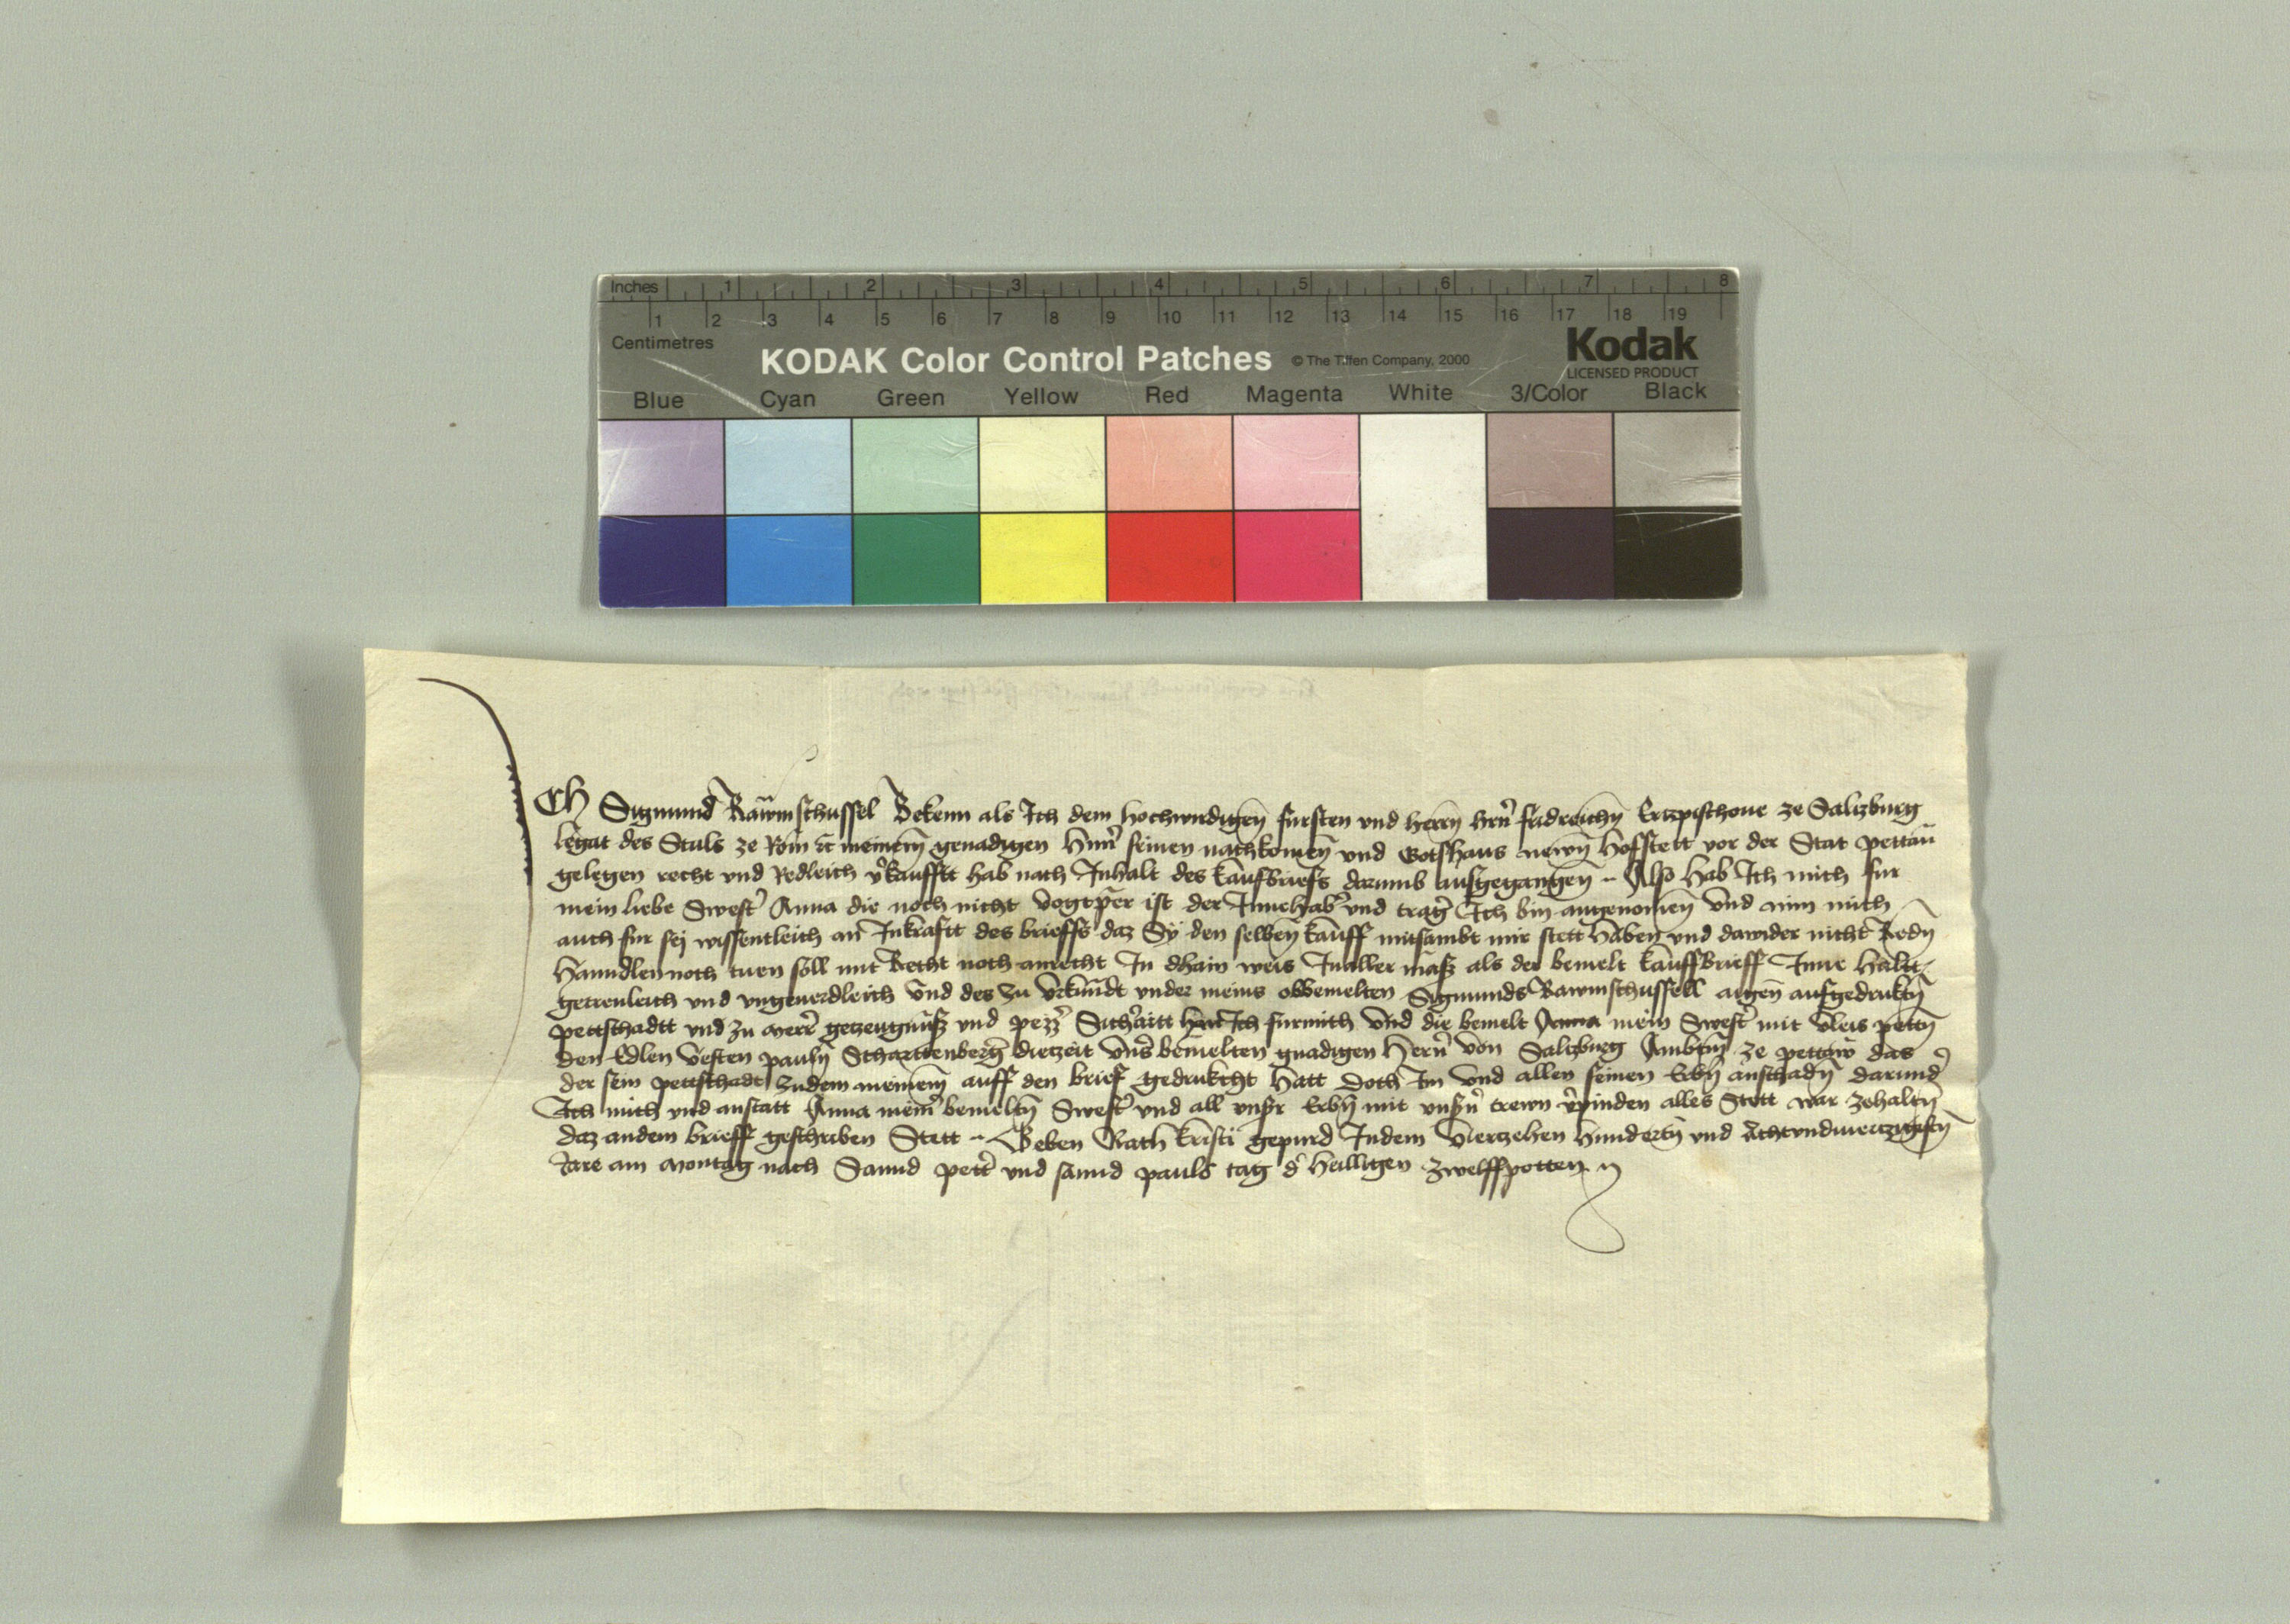 Inches 1 2 3 4 5 6 7 8
1 2 3 4 5 6 7 8 9 10 11 12 13 14 15 16 17 18 19
Centimetres
KODAK Color Control Patches © The Tiffen Company, 2000 Kodak
LICENSED PRODUCT
Blue Cyan Green Yellow Red Magenta White 3/Color Black
Ich Sigmund Rawmschussel Bekenn als Ich dem hochwirdigen̄ fursten vnd herrn̄ hrn̄ fridreichn̄ Ertzpischoue ze Salczburg
legat des Stuls ze Rom ꝛc meinem̄ genadigen hern̄ seinen nachkomen̄ vnd Gotshaus newn̄ hofstett vor der Stat pettaw
gelegen recht vnd Redleich v̓kaufftt hab nach Inhalt des kaufbriefs darumb ausgegangen̄ Also hab Ich mich fur
mein liebe Swest̓ Anna die noch nicht vogtper ist der Innehab̓ vnd trag̓ Ich bin angenomen̄ vnd nim mich
auch fur sej wissentleich an Inkrafft des brieffs daz Sy den selben̄ kauff mitsambt mir stett haben̄ vnd dawider nicht Redn̄
hanndlen noch tuen soll mit Recht noch anrecht In dhain weis Inaller mass als der bemelt kauffbrieff Inne haltt
getreuleich vnd vngeuerdleich vnd des zu vrkundt vnder meins obbemelten Sigmunds Rawmschussell aigen̄ aufgedruktn̄
pettschadtt vnd zu merr̓ getzeugnuss vnd pezz̓ Sich̓aitt han Ich furmich vnd die bemelt Anna mein Swest̓ mit vleis petn̄
den Edlen vesten pauln̄ Scharttenberg̓ dietzeit vns̓s bemelten gnadigen Hern̄ von Saltzburg Ambtm̄ ze pettaw das
der sein pettschadt zudem meinem̄ auff den brief gedrukcht hatt doch Im vnd allen seinen Erbn̄ anschadn̄ darund̓
Ich mich vnd anstatt Anna meinr̓ bemeltn̄ Swest̓ vnd all vnsr Erbn̄ mit vnsn̓ trewn v̓pinden alles Stett war zehaltn̄
daz andem brieff geschriben Stett Geben Nach kristi gepurd Indem viertzehen hundertn̄ vnd Achtvnduiertzigistn̄
Jare am montag nach Sannd pett̓ vnd sannd pauls tag d̓ heilligen zwelffpotten